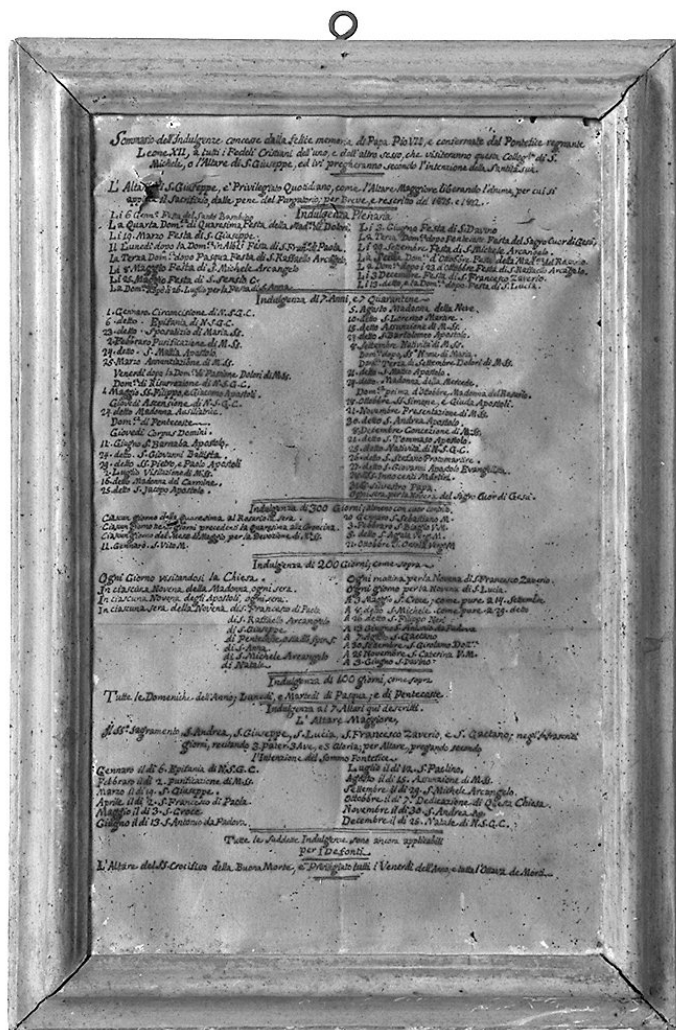 Sommario dell'Indulgenze concesse dalla felice memoria di Papa Pio VII, e confermate dal Pontefice regnante
Leone XII, a tutti i Fedeli Cristiani dell'uno, e dell'altro sesso, che visiteranno questa Collegta. di S.
Michele, e l'Altare di S. Giuseppe, ed ivi pregheranno secondo l'intenzione della Santità Sua.
L'Altare di S. Giuseppe, e' Privilegiato Quotidiano, come l'Altare Maggiore liberando l'anima, per cui si
applica il Sacrifizio, dalle pene del Purgatorio, per Breve, e restritto del
Indulgenza Plenaria
Li 6 Genn. Festa del Santo Bambino
La Quarta Dom. di Quaresima Festa della Dolori
Li 19. Marzo Festa di S. Giuseppe.
Il Lunedì dopo la Dom. in Albis Festa di S. Franc. di Paola.
La Terza Dom. dopo Pasqua Festa di S. Raffaello Arcangelo
Li 8. Maggio Festa di S. Michele Arcangelo
Li 25. Maggio Festa di S.
La Dom. dopo il 26. Luglio per la Festa di S. Anna
Li 3. Giugno Festa di S. Davino
La Terza Dom. dopo Pentecoste Festa del Sagro Cuor di Gesù
Li 29 Settembre Festa di S. Michele Arcangelo
La Dom. d'Ottobre Festa della del Rosario
La Dom. dopo i 23 d'Ottobre Festa di S. Raffaello Arcangelo
Li 3 Decembre Festa di S. Francesco Zaverio.
Li 13 detto, e la Dom. dopo Festa di S. Lucia.
Indulgenza di 7 Anni, e 7 Quarantene
1. Gennaro Circoncisione di N.S.G.C.
6. detto. Epifania di N.S.G.C.
23. detto. Sposalizio di Maria SS.
2. Febbraro Purificazione di M. SS.
24. detto. S. Mattia Apostolo
25. Marzo Annunziazione di M. SS.
Venerdì dopo la Dom. di Passione Dolori di M. SS.
Dom. di Risurrezione di N.S.G.C.
1. Maggio SS. Filippo, e Giacomo Apostoli
Giovedì Ascensione di N.S.G.C.
24. detto Madonna Ausiliatrice.
Dom. di Pentecoste
Giovedì Corpus Domini.
11. Giugno S. Barnaba Apostolo.
24. detto. S. Giovanni Battista.
29. detto. SS. Pietro, e Paolo Apostoli
2. Luglio Visitazione di M. SS.
16. detto Madonna del Carmine.
25. detto S. Jacopo Apostolo.
5. Agosto Madonna della Neve
10. detto S. Lorenzo Martire.
15. detto Assunzione di M. SS.
24. detto S. Bartolomeo Apostolo.
8. Settembre Natività di M. SS.
Dom. dopo, SS. Nome di Maria.
Dom. Terza di Settembre Dolori di M. SS.
21. detto S. Matteo Apostolo.
24. detto. Madonna della Mercede.
Dom. prima d'Ottobre Madonna del Rosario.
28. Ottobre SS. Simone, e Giuda Apostoli.
21. Novembre Presentazione di M. SS.
30. detto S. Andrea Apostolo.
8. Decembre Concezione di M. SS.
21. detto S. Tommaso Apostolo.
25. detto Natività di N.S.G.C.
26. detto S. Stefano Protomartire.
27. detto S. Giovanni Apostolo Evangelista.
28. detto SS. Innocenti Martiri.
31. detto S. Silvestro Papa.
Ogni sera per la Novena del Sigro Cuor di Gesù.
Indulgenza di 300 Giorni, almeno con cuor contrito.
Ciascun giorno della Quaresima al Rosario la sera.
Ciascun giorno dei giorni precedenti la quaresima alle
Ciascun giorno del Mese di Maggio per la Devozione di
Gennaro. S. Vito M.
20 Gennaro S. Sebastiano M.
3. Febbraro S. Biagio V.M.
5. detto S. Agata Verg. M.
21. Ottobre S. Orsola Verg. M
Indulgenza di 200 Giorni, come sopra
Ogni Giorno visitandosi la Chiesa.
In ciascuna Novena della Madonna, ogni sera.
In ciascuna Novena degli Apostoli, ogni sera.
In ciascuna sera della Novena, di S. Francesco di Paola
di S. Raffaello Arcangelo
di S. Giuseppe
di Pentecoste
di S. Anna
di S. Michele Arcangelo
di Natale.
Ogni mattina per la Novena di S. Francesco Zaverio.
Ogni giorno per la Novena di S. Lucia.
A 3. Maggio S. Croce, come pure a 14. Settembre
A 8. detto S. Michele. come pure a 29. detto
A 26 detto S. Filippo Neri
A 13 Giugno S. Antonio da Padova
A 7 Agosto S. Gaetano
A 30 Settembre S. Girolamo Dott.
A 25 Novembre S. Caterina V.M.
A 3 Giugno S. Davino
Indulgenza di 100 Giorni, come sopra
Tutte le Domeniche dell'Anno, Lunedì, e Martedì di Pasqua, e di Pentecoste
Indulgenza ai 7 Altari qui descritti.
L'Altare Maggiore,
Il SS. Sagramento, S. Andrea, S. Giuseppe, S. Lucia, S. Francesco Zaverio, e S. Gaetano; negl'Infrascritti
giorni, recitando 3 Pater 3 Ave, e 3 Gloria, per Altare, pregando secondo
l'Intenzione del Sommo Pontefice
Gennaro il di 6. Epifania di N.S.G.C.
Febbraro il di 2. Purificazione di M. SS.
Marzo il di 19. S. Giuseppe.
Aprile il di 2. S. Francesco di Paola
Maggio il di 3. S. Croce
Giugno il di 13. S. Antonio da Padova.
Luglio il di 12. S. Paolino.
Agosto il di 15. Assunzione di M. SS.
Settembre il di 29. S. Michele Arcangelo.
Ottobbre il di Dedicazione di Questa Chiesa.
Novembre il di 30 S. Andrea Ap.
Decembre il di 25. Natale di N.S.G.C.
Tutte le suddette Indulgenze sono ancora applicabili
per i Defonti.
L'Altare del SS. Crocifisso della Buona Morte, e' Privilegiato tutti i Venerdì dell'Anno, e tutta l'Ottava de Morti.